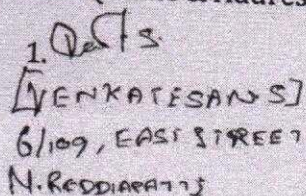 1.
[VENKATESAN S]
6/109, EAST STREET
N. REDDIAPATTI